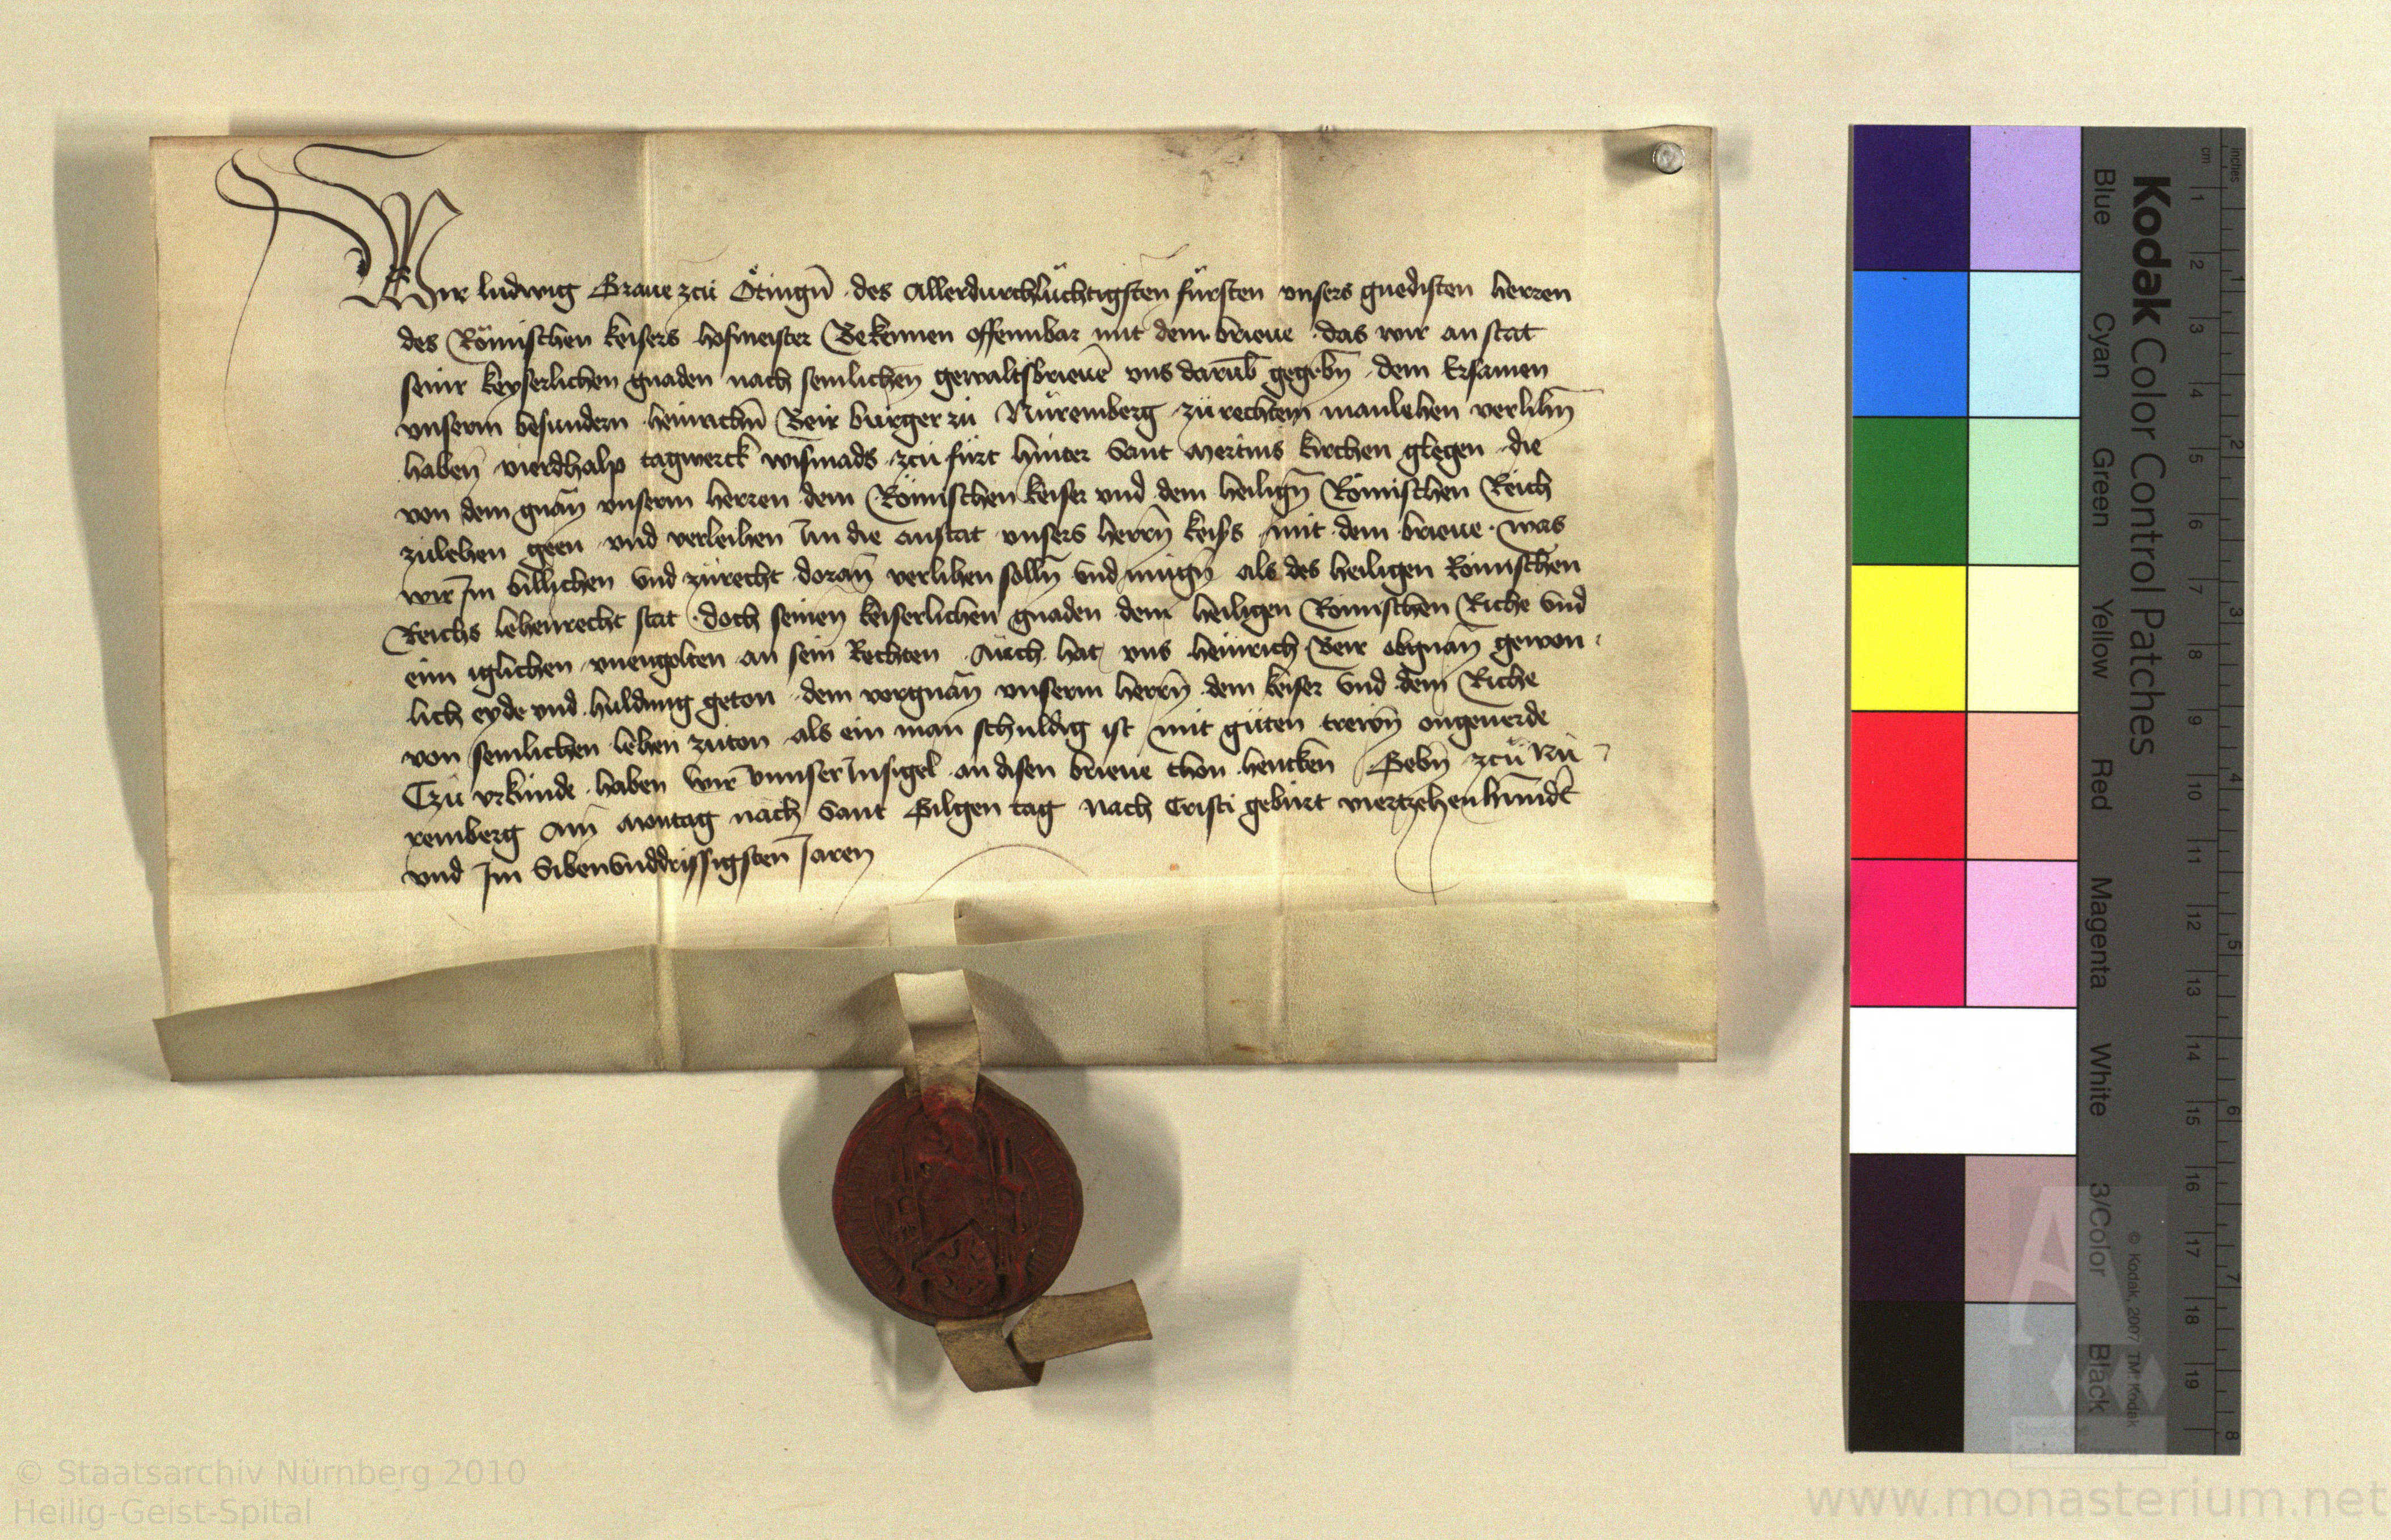 Wir ludwig Graue zcu Ötingn̄ des Allerdurchlüchtigsten fürsten vnsers gnedisten herren
des Römischen keisers hofmeister Bekennen offennbar mit dem brieue das wir an stat
seinr keyserlichen gnaden nach semlichen gewaltsbrieue vns darūb gegebn̄ dem Ersamen
vnserm besundern heinrichn̄ Beir burger zu Nüremberg zu rechtem manlehen verlihn̄
haben vierdhalp tagwerck wismads zcu fürt hinter Sant Mertins kirchen glegen die
von dem gnan̄ vnserm herren dem Römischen keiser vnd dem heilign̄ Römischen Reich
zulehen geen vnd verleihen Im die anstat vnsers herrn̄ keisers mit dem brieue was
wir Im billichen vnd zurecht doran̄ verlihen solln̄ vnd mugn̄ als des heiligen Römischen
Reichs lehenrecht stat doch seinen keiserlichen gnaden dem heiligen Römischen Riche vnd
eim iglichen vnengolten an sein Rechten Auch hat vns heinrich Beir obgnan̄ gewon
lich eyde vnd huldung geton dem vorgnan̄ vnserm herrn̄ dem keiser vnd dem Riche
von semlichen lehen zuton als ein man schuldig ist mit guten trewn̄ ongeuerde
Tzu vrkunde haben wir vnnser Insigel an disen brieue thon hencken Gebn̄ zcu Nü
remberg Am Montag nach Sant Gilgen tag nach Cristi geburt viertzehenhundt̄
vnd Im Sibenvnddrissigsten Jaren
Kodak Color Control Patches
Blue
Cyan
Green
Yellow
Red
Magenta
White
3/Color
Black
© Kodak, 2007 TM: Kodak
inches
cm
1 2 3 4 5 6 7 8 9 10 11 12 13 14 15 16 17 18 19
1 2 3 4 5 6 7 8
© Staatsarchiv Nürnberg 2010
Heilig-Geist-Spital
www.monasterium.net